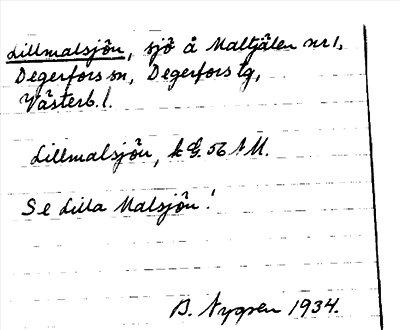 Lillmalsjön, sjö å Maltjälen nr 1,
Degerfors sn, Degerfors tg,
Västerb. l.
Lillmalsjön, k G. 56 A M.
Se Lilla Malsjön!
B. Nygren 1934.